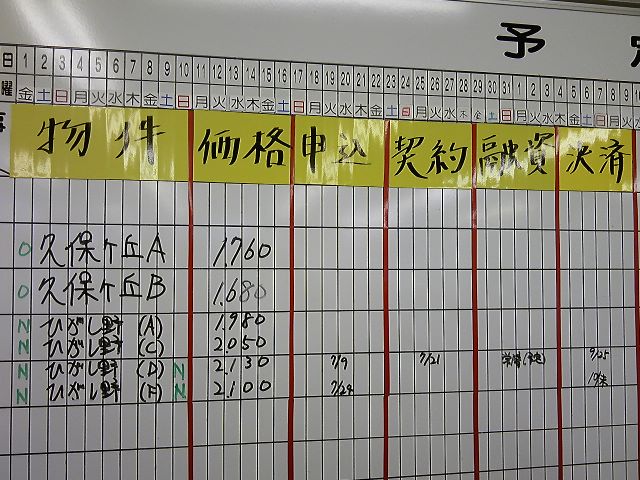 予定
日 1 2 3 4 5 6 7 8 9 10 11 12 13 14 15 16 17 18 19 20 21 22 23 24 25 26 27 28 29 30 31 1 2 3 4 5 6 7 8 9 10
曜 金 土 日 月 火 水 木 金 土 日 月 火 水 木 金 土 日 月 火 水 木 金 土 日 月 火 水 木 金 土 日 月 火 水 木 金 土 日 月 火 水
物件 価格 申込 契約 融資 決済
O 久保ヶ丘A 1,760
O 久保ヶ丘B 1,680
N ひがし野 (A) 1,980
N ひがし野 (C) 2,050
N ひがし野 (D) N 2,130 7/9 7/21 9/25
N ひがし野 (F) N 2,100 7/24